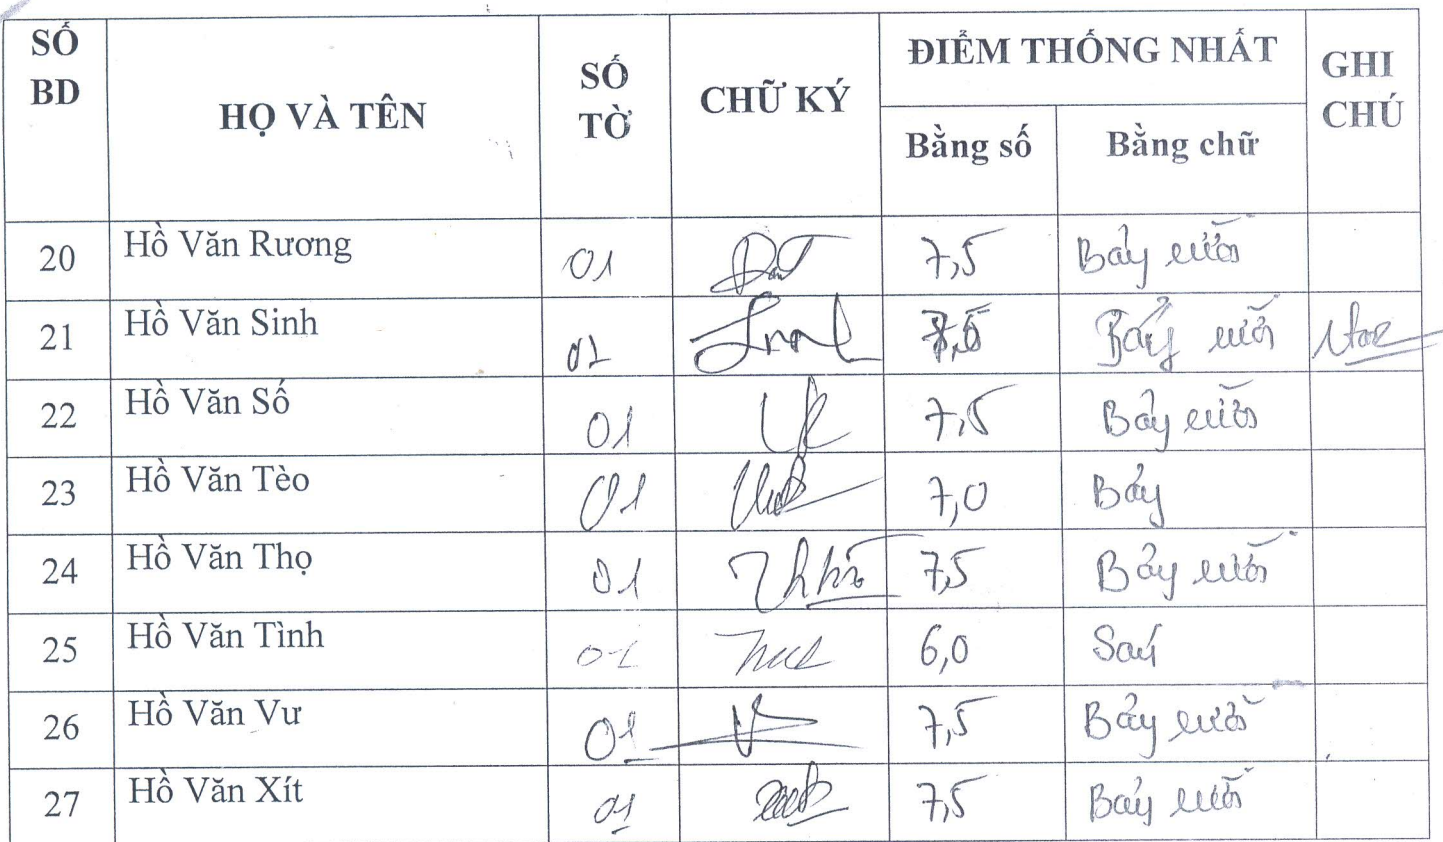 SỐ BD HỌ VÀ TÊN SỐ TỜ CHỮ KÝ ĐIỂM THỐNG NHẤT GHI CHÚ
Bằng số Bằng chữ
20 Hồ Văn Rương 01 7,5 Bảy rưỡi
21 Hồ Văn Sinh Bảy rưỡi
22 Hồ Văn Số 01 7,5 Bảy rưỡi
23 Hồ Văn Tèo 01 7,0 Bảy
24 Hồ Văn Thọ 01 7,5 Bảy rưỡi
25 Hồ Văn Tình 6,0 Sáu
26 Hồ Văn Vư 01 7,5 Bảy rưỡi
27 Hồ Văn Xít 01 7,5 Bảy rưỡi